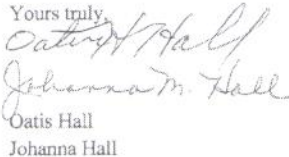 Yours truly,
Oatis H Hall
Johanna M. Hall
Oatis Hall
Johanna Hall